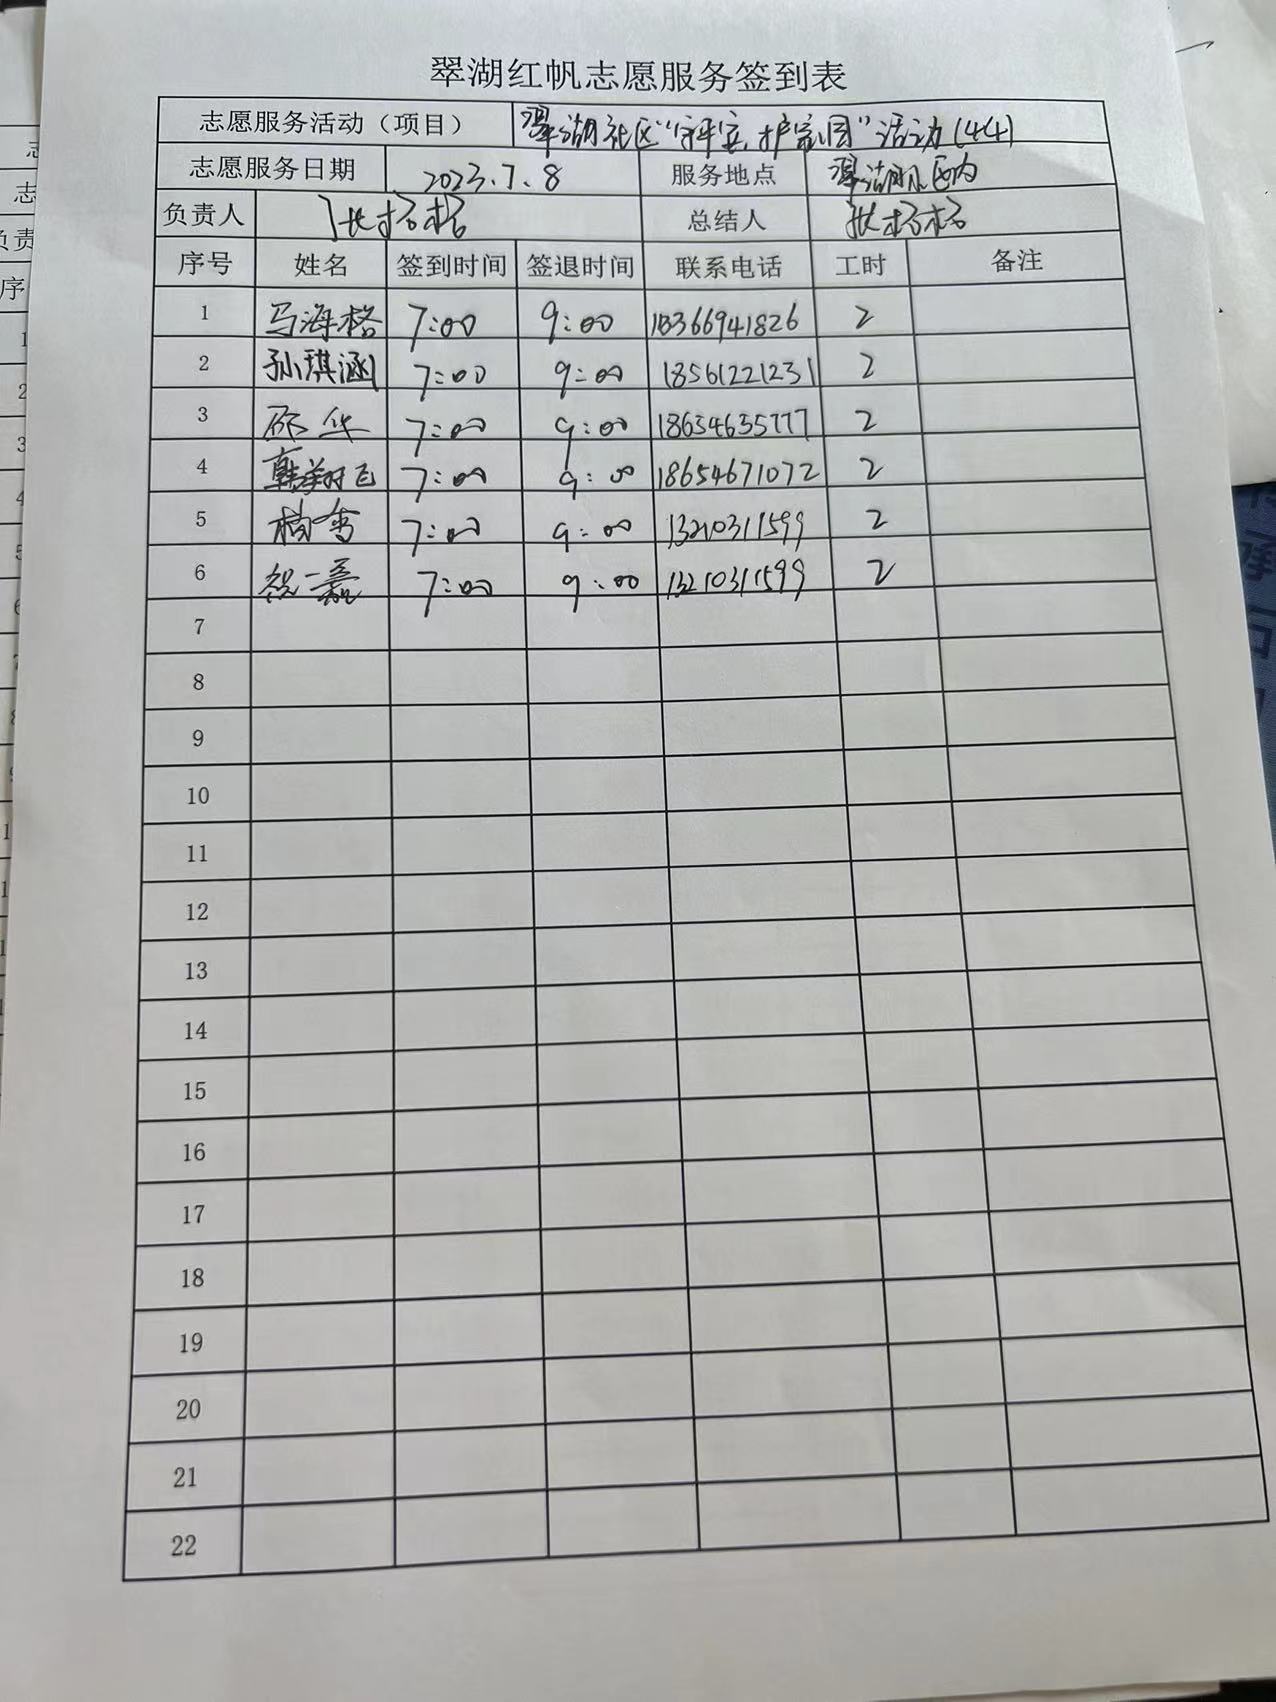 翠湖红帆志愿服务签到表
志愿服务活动（项目） 翠湖社区“守平安，护家园”活动(44)
志愿服务日期 2023.7.8 服务地点 翠湖小区内
负责人 张格格 总结人 张格格
序号 姓名 签到时间 签退时间 联系电话 工时 备注
1 马海格 7:00 9:00 18366941826 2
2 孙琪涵 7:00 9:00 18561221231 2
3 华 7:00 9:00 18634635777 2
4 韩翔飞 7:00 9:00 18654671072 2
5 杨雪 7:00 9:00 13210311599 2
6 祝一嘉 7:00 9:00 13210311599 2
7
8
9
10
11
12
13
14
15
16
17
18
19
20
21
22